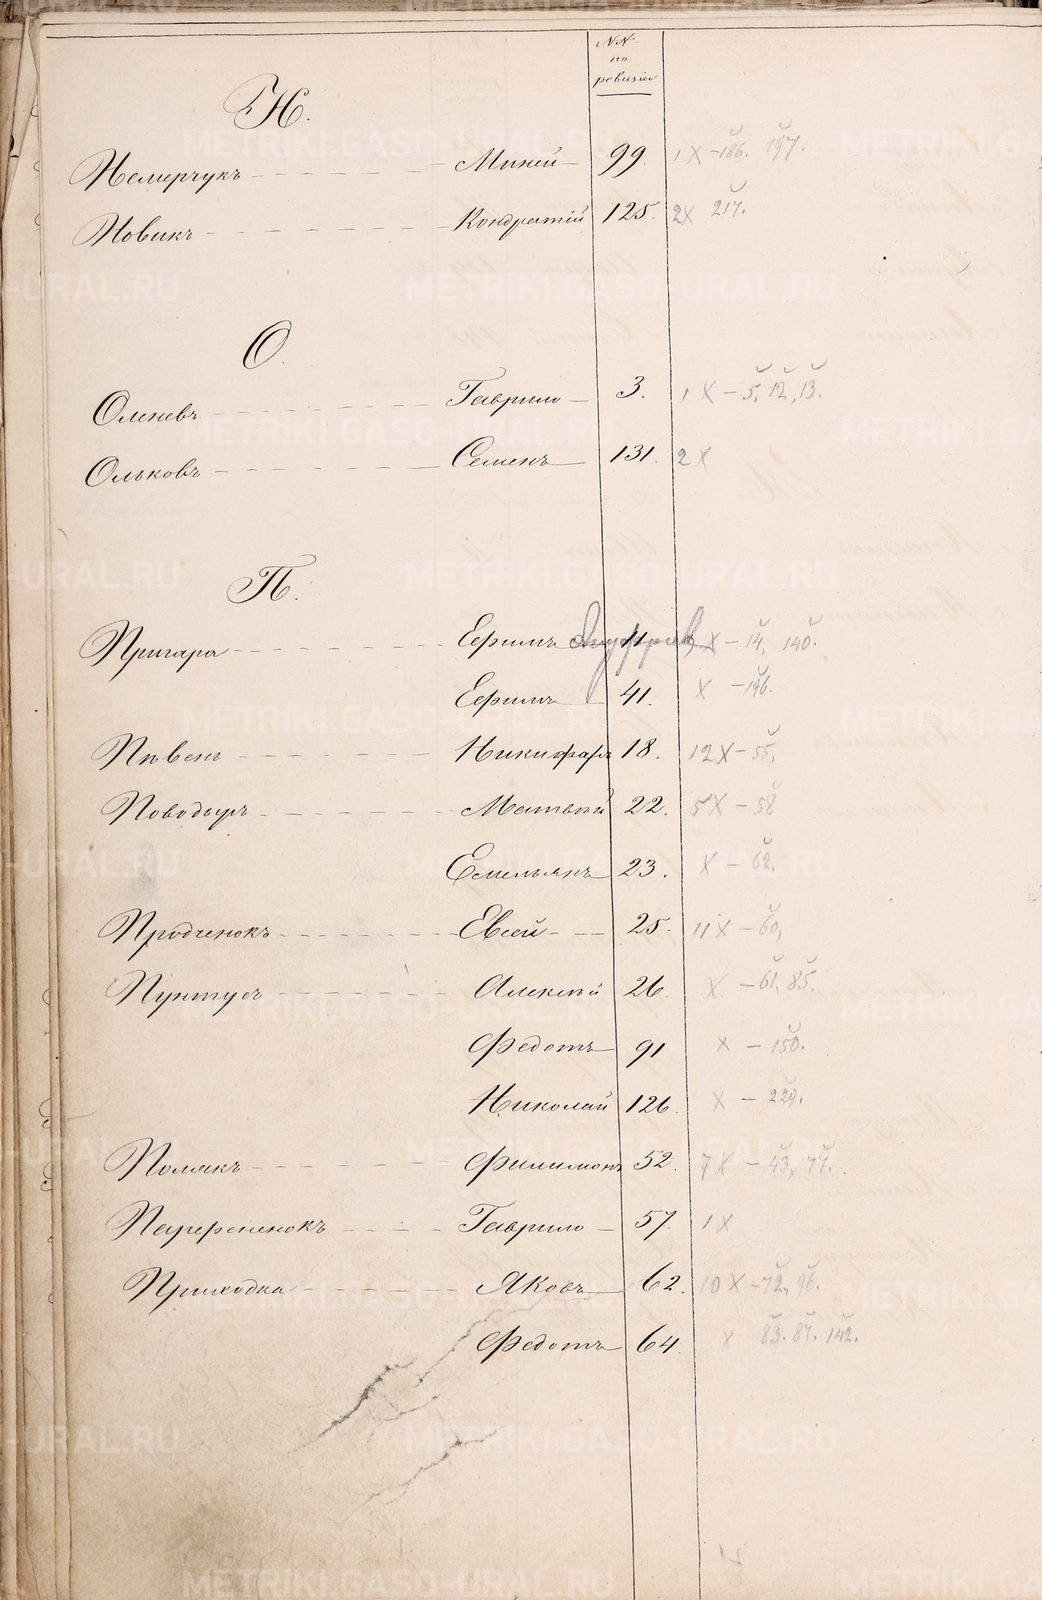 NN
по
ревизіи
Н.
Немерчукъ Миней 99. 1 X - 186. 197.
Новикъ Кондратій 125. 2 X 217.
О.
Оленевъ Гаврило 3. 1 X - 5, 12, 13.
Ольковъ Семенъ 131. 2 X
П.
Пригара Ефимъ 11 X - 14, 140.
Ефимъ 41. X - 196.
Пѣвень Никифоръ 18. 12 X - 55,
Поводырь Матвѣй 22. 5 X - 58
Емельянъ 23. X - 62,
Продченокъ Евсей 25. 11 X - 60,
Пунтусъ Алексѣй 26. X - 61, 85.
Федотъ 91 X - 150.
Николай 126. X - 229.
Полякъ Филимонъ 52. 7 X - 43, 77.
Гаврило 57. 1 X
Приходка Яковъ 62. 10 X - 72, 96.
Федотъ 64. X 83. 87. 142.
METRIKI.GASO-URAL.RU